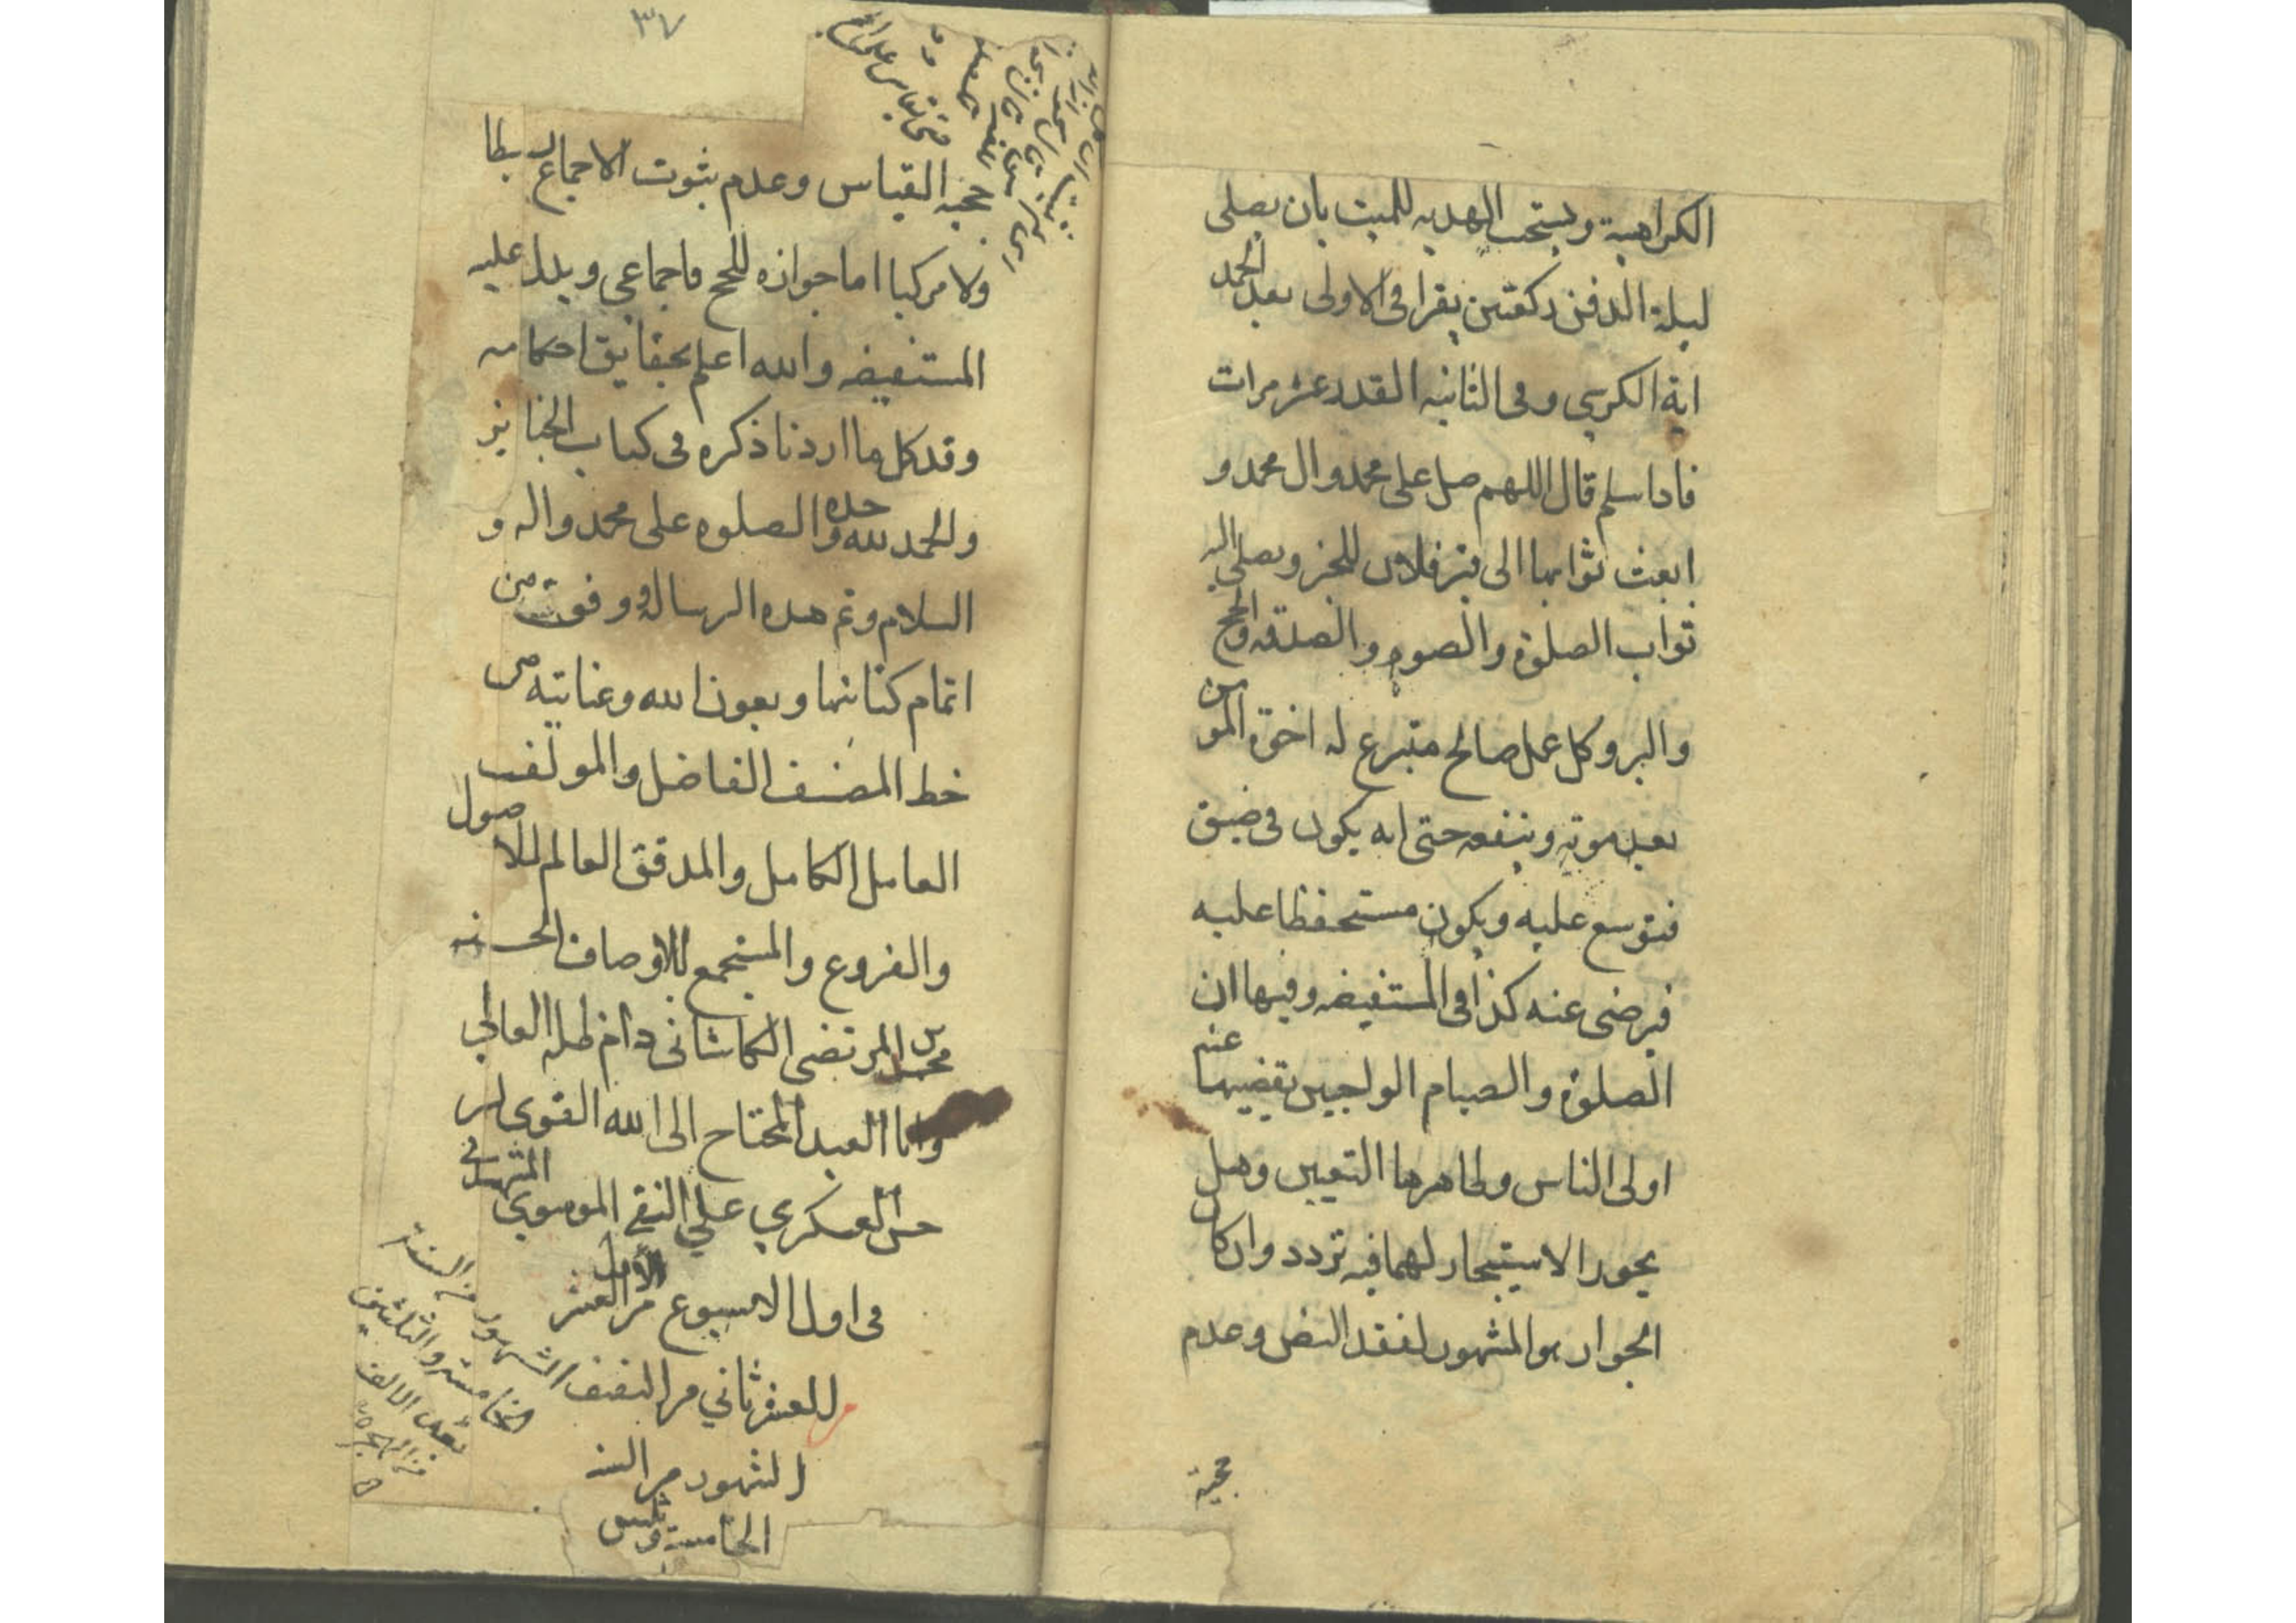 الكراهية ويستحب الهديه للميت بان يصلى
ليلة الدفن ركعتين يقرا فى الاولى بعد الحمد
اية الكرسي وفى الثانيه القدر عشر مرات
فاذا سلم قال اللهم صل على محمد وال محمد و
ابعث ثوابها الى قبر فلان للخبر ويصل اليه
ثواب الصلوة والصوم والصدقه والحج
والبر وكل عمل صالح متبرع له اخوة المومن
بعد موته وينفعه حتى انه يكون فى ضيق
فيتوسع عليه ويكون مستحفظا عليه
فيرضى عنه كذا فى المستفيضه وفيها ان
الصلوة والصيام الواجبين يقضيهما عنه
اولى الناس وظاهرها التعيين وهل
يجوز الاستيجار لهما فيه تردد وان كان
الجواز هو المشهور لفقد النص وعدم
حجية
٣٧
حجيه القياس وعدم ثبوت الاجماع بسيطا
ولا مركبا اما جوازه للحج فاجماعى ويدل عليه
المستفيضه والله اعلم بحقايق احكامه
وقد كمل ما اردنا ذكره فى كتاب الجنايز
والحمد لله وحده والصلوه على محمد واله و
السلام وتم هذه الرساله ووفقت من
اتمام كتابتها وبعون الله وعنايته من
خط المصنف الفاضل والمولف
العامل الكامل والمدقق العالم للاصول
والفروع والمستجمع للاوصاف الحسنه
محسن المرتضى الكاشانى دام ظله العالي
وانا العبد المحتاج الى الله القوى ابن
حسن العسكري علي النقي الموسوي
فى اول الاسبوع من العشر الاول
من العشر ثاني من النصف
الشهور من السنة
الخامسة والثلثين
بعد الالف
من الهجرة
الشهور من السنه
الخامسة وثلثين